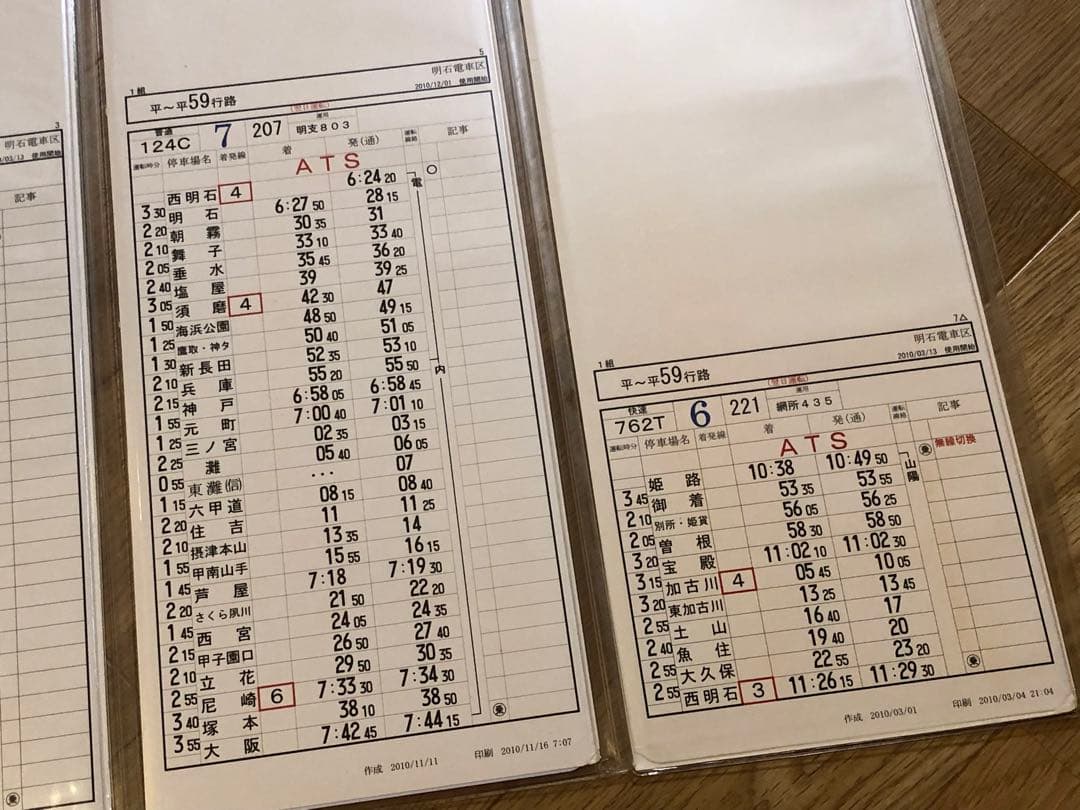 3
明石電車区
使用開始
記事
乗
5
1組
明石電車区
平～平59行路
2010/12/01 使用開始
(翌日運転)
普通
運用
124C 7 207 明支803
運転時分 停車場名 着発線 着 発(通) 運転線路 記事
ATS
西明石 4 6:24 20 電 ○
3 30 明石 6:27 50 28 15
2 20 朝霧 30 35 31
2 10 舞子 33 10 33 40
2 05 垂水 35 45 36 20
2 40 塩屋 39 39 25
3 05 須磨 4 42 30 47
1 50 海浜公園 48 50 49 15
1 25 鷹取・神タ 50 40 51 05
1 30 新長田 52 35 53 10
2 10 兵庫 55 20 55 50 内
2 15 神戸 6:58 05 6:58 45
1 55 元町 7:00 40 7:01 10
1 25 三ノ宮 02 35 03 15
2 25 灘 05 40 06 05
0 55 東灘(信) ... 07
1 15 六甲道 08 15 08 40
2 20 住吉 11 11 25
2 10 摂津本山 13 35 14
1 55 甲南山手 15 55 16 15
1 45 芦屋 7:18 7:19 30
2 20 さくら夙川 21 50 22 20
1 45 西宮 24 05 24 35
2 15 甲子園口 26 50 27 40
2 10 立花 29 50 30 35
2 55 尼崎 6 7:33 30 7:34 30
3 40 塚本 38 10 38 50
3 55 大阪 7:42 45 7:44 15 乗
作成 2010/11/11 印刷 2010/11/16 7:07
7△
1組
明石電車区
平～平59行路
2010/03/13 使用開始
(翌日運転)
快速
運用
762T 6 221 網所435
運転時分 停車場名 着発線 着 発(通) 運転線路 記事
ATS
姫路 10:38 10:49 50 山陽 乗 無線切換
3 45 御着 53 35 53 55
2 10 別所・姫貨 56 05 56 25
2 05 曽根 58 30 58 50
3 20 宝殿 11:02 10 11:02 30
3 15 加古川 4 05 45 10 05
3 20 東加古川 13 25 13 45
2 55 土山 16 40 17
2 40 魚住 19 40 20
2 55 大久保 22 55 23 20
2 55 西明石 3 11:26 15 11:29 30 乗
作成 2010/03/01 印刷 2010/03/04 21:04